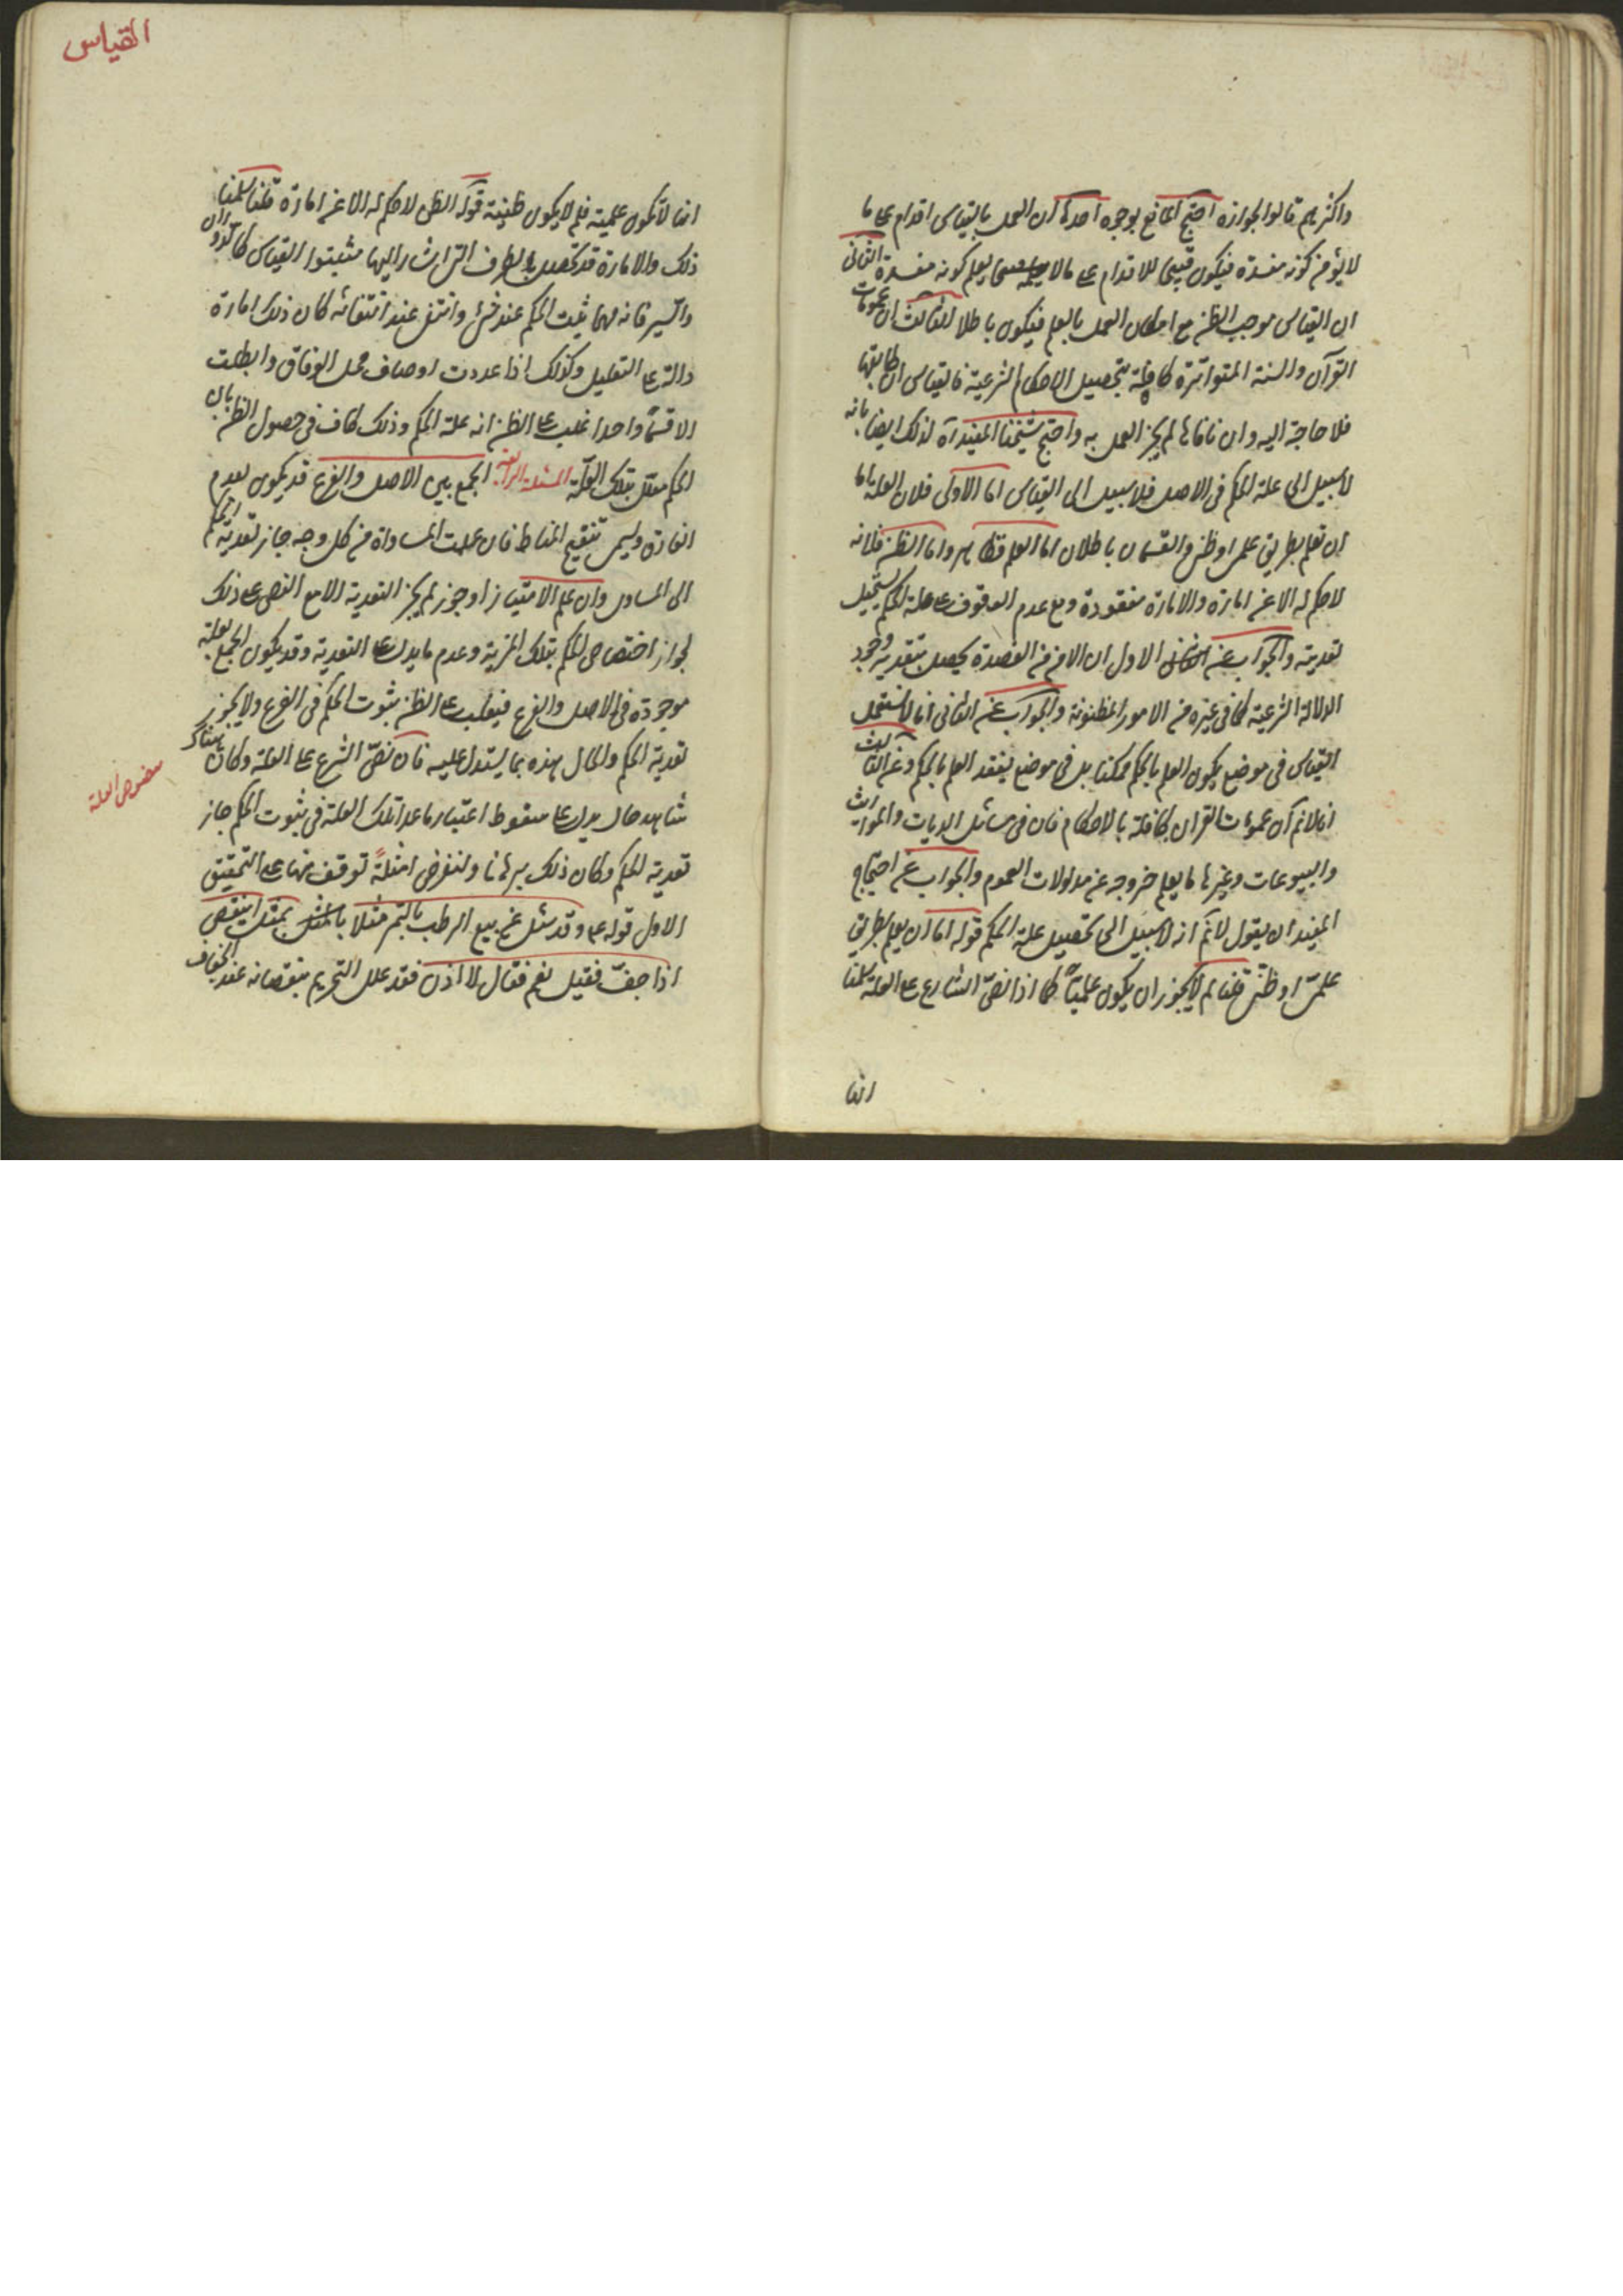 واكثرهم قالوا بجوازه احتج المانع بوجوه احدها ان العمل بالقياس اقدام على ما
لا يؤمن كونه مفسدة فيكون قبيحا كالاقدام على ما يعلم كونه مفسدة الثانى
ان القياس موجب الظن مع امكان العمل بالعلم فيكون باطلا الثالث ان عمومات
القرآن والسنة المتواترة كافلة بتحصيل الاحكام الشرعية فالقياس ان طابقها
فلا حاجة اليه وان نافاها لم يجز العمل به واحتج شيخنا المفيد ره لذلك ايضا بانه
لا سبيل الى علة الحكم فى الاصل فلا سبيل الى القياس اما الاولى فلان العلة اما
ان تعلم بطريق علمى او ظنى والقسمان باطلان اما العلم فظاهر واما الظن فلانه
لا حكم له الا عن امارة والامارة مفقودة ومع عدم الوقوف على علة الحكم يستحيل
تعديته والجواب عن الاول ان الامن من المفسدة يحصل بتقدير وجود
الدلالة الشرعية كما فى غيره من الامور المظنونة والجواب عن الثانى انا لا نستعمل
القياس فى موضع يكون العلم بالحكم ممكنا بل فى موضع يفقد العلم بالحكم وعن الثالث
انا لا نم ان عمومات القران كافلة بالاحكام فان فى مسائل الديات والمواريث
والبيوعات وغيرها ما يعلم خروجه عن مدلولات العموم والجواب عن احتجاج
المفيد ان يقول لا نم انه لا سبيل الى تحصيل علة الحكم قوله اما ان يعلم بطريق
علمى او ظنى قلنا لم لا يجوز ان يكون علميا كما اذا نص الشارع على العلة سلمنا
انها
القياس
انها لا تكون علمية فلم لا يكون ظنية قوله الظن لا حكم له الا عن امارة قلنا سلمنا
ذلك والامارة قد تحصل بالطرف التى اشار اليها مثبتوا القياس كالدوران
والسير فانه مهما ثبت الحكم عند شئ وانتفى عند انتفائه كان ذلك امارة
دالة على التعليل وكذلك اذا عددت اوصاف محل الوفاق وابطلت
الا قسما واحدا غلب على الظن انه علة الحكم وذلك كاف فى حصول الظن بان
الحكم معلل بتلك العلة المسئلة الرابعة الجمع بين الاصل والفرع قد يكون بعدم
الفارق وليس تنقيح المناط فان علمت المساواة من كل وجه جاز تعدية الحكم
الى المساوى وان علم الامتياز او جوز لم يجز التعدية الا مع النص على ذلك
لجواز اختصاص الحكم بتلك المزية وعدم ما يدل على التعدية وقد يكون الجمع بعلة
موجودة فى الاصل والفرع فيغلب على الظن بثبوت الحكم فى الفرع ولا يجوز
تعدية الحكم والحال هذه بما يستدل عليه فان نص الشرع على العلة وكان هناك
شاهد حال يدل على سقوط اعتبار ما عدا تلك العلة فى ثبوت الحكم جاز
تعدية الحكم وكان ذلك برهانا ولنفرض امثلة توقف منها على التحقيق
الاول قوله ع وقد سئل عن بيع الرطب بالتمر مثلا بمثل اينقص
اذا جف فقيل نعم فقال لا اذن فقد علل التحريم بنقصانه عند الجفاف
منصوص العلة